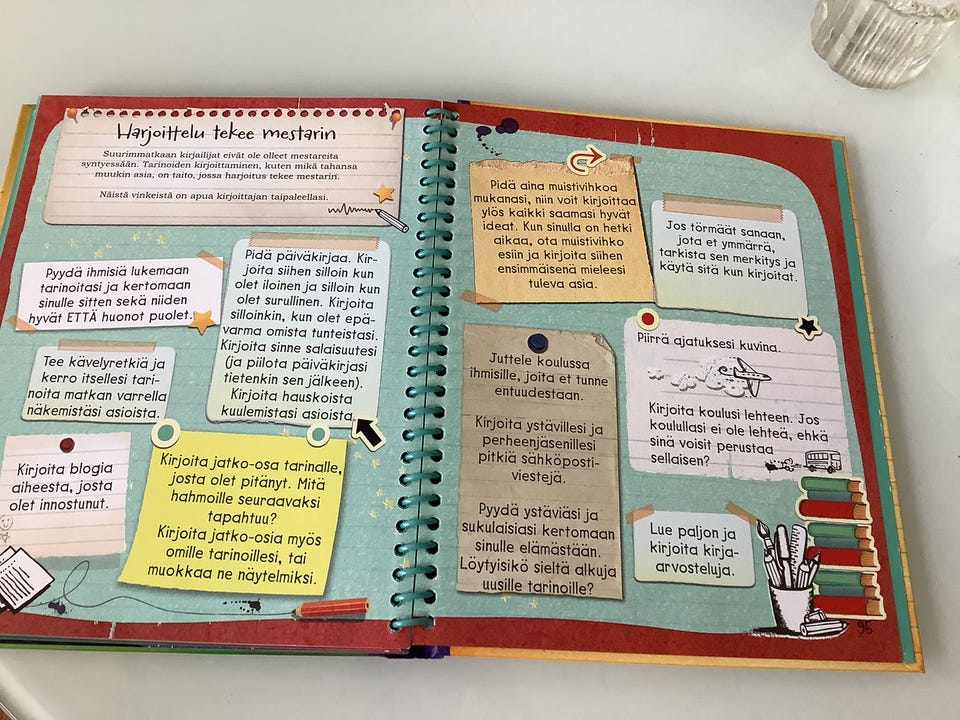 Harjoittelu tekee mestarin
Suurimmatkaan kirjailijat eivät ole olleet mestareita
syntyessään. Tarinoiden kirjoittaminen, kuten mikä tahansa
muukin asia, on taito, jossa harjoitus tekee mestarin.
Näistä vinkeistä on apua kirjoittajan taipaleellasi.
Pyydä ihmisiä lukemaan
tarinoitasi ja kertomaan
sinulle sitten sekä niiden
hyvät ETTÄ huonot puolet.
Pidä päiväkirjaa. Kir-
joita siihen silloin kun
olet iloinen ja silloin kun
olet surullinen. Kirjoita
silloinkin, kun olet epä-
varma omista tunteistasi.
Kirjoita sinne salaisuutesi
(ja piilota päiväkirjasi
tietenkin sen jälkeen).
Kirjoita hauskoista
kuulemistasi asioista.
Tee kävelyretkiä ja
kerro itsellesi tari-
noita matkan varrella
näkemistäsi asioista.
Kirjoita blogia
aiheesta, josta
olet innostunut.
Kirjoita jatko-osa tarinalle,
josta olet pitänyt. Mitä
hahmoille seuraavaksi
tapahtuu?
Kirjoita jatko-osia myös
omille tarinoillesi, tai
muokkaa ne näytelmiksi.
Pidä aina muistivihkoa
mukanasi, niin voit kirjoittaa
ylös kaikki saamasi hyvät
ideat. Kun sinulla on hetki
aikaa, ota muistivihko
esiin ja kirjoita siihen
ensimmäisenä mieleesi
tuleva asia.
Jos törmäät sanaan,
jota et ymmärrä,
tarkista sen merkitys ja
käytä sitä kun kirjoitat.
Juttele koulussa
ihmisille, joita et tunne
entuudestaan.
Kirjoita ystävillesi ja
perheenjäsenillesi
pitkiä sähköposti-
viestejä.
Pyydä ystäviäsi ja
sukulaisiasi kertomaan
sinulle elämästään.
Löytyisikö sieltä alkuja
uusille tarinoille?
Piirrä ajatuksesi kuvina.
Kirjoita koulusi lehteen. Jos
koulullasi ei ole lehteä, ehkä
sinä voisit perustaa
sellaisen?
Lue paljon ja
kirjoita kirja-
arvosteluja.
95